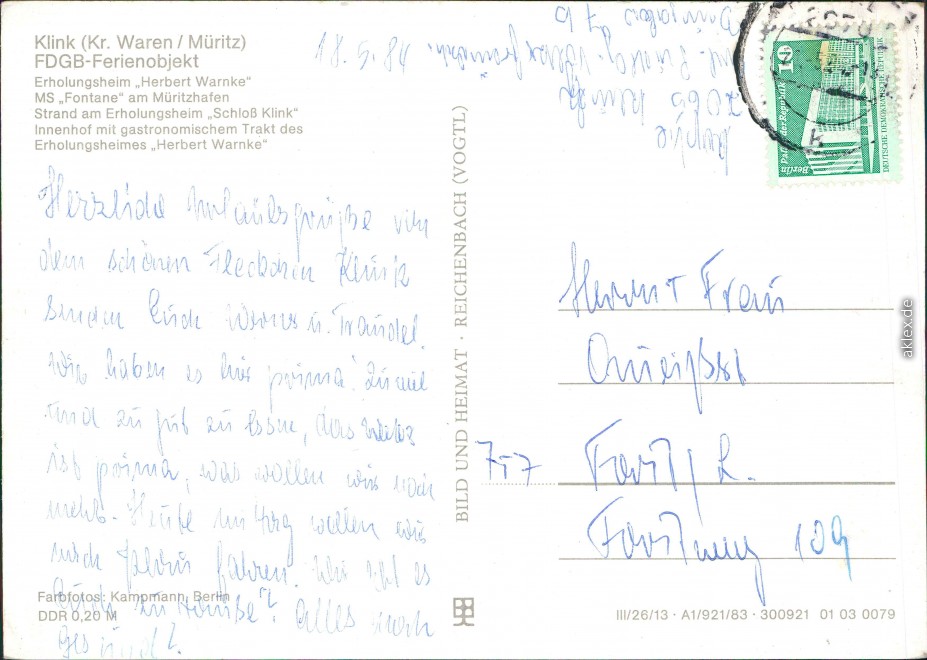 Klink (Kr. Waren / Müritz)
FDGB-Ferienobjekt
Erholungsheim „Herbert Warnke"
MS „Fontane" am Müritzhafen
Strand am Erholungsheim „Schloß Klink"
Innenhof mit gastronomischem Trakt des
Erholungsheimes „Herbert Warnke"
18.5.84
Herzliche Urlaubsgrüße von
dem schönen Fleckchen Klink
senden Euch Werner u. Traudel.
Wir haben es hier prima. Zuviel
und zu gut zu Essen, das Wetter
ist prima, was wollen wir noch
mehr. Heute Mittag wollen wir
nach fahren. Wie geht es
Euch zu Hause? Alles noch
gesund?
Farbfotos: Kampmann, Berlin
DDR 0,20 M
BILD UND HEIMAT · REICHENBACH (VOGTL)
2065 Klink
10
Berlin Palast der Republik
DEUTSCHE DEMOKRATISCHE REPUBLIK
Herrn u. Frau
757 Forst / L.
109
III/26/13 · A1/921/83 · 300921 01 03 0079
aklex.de